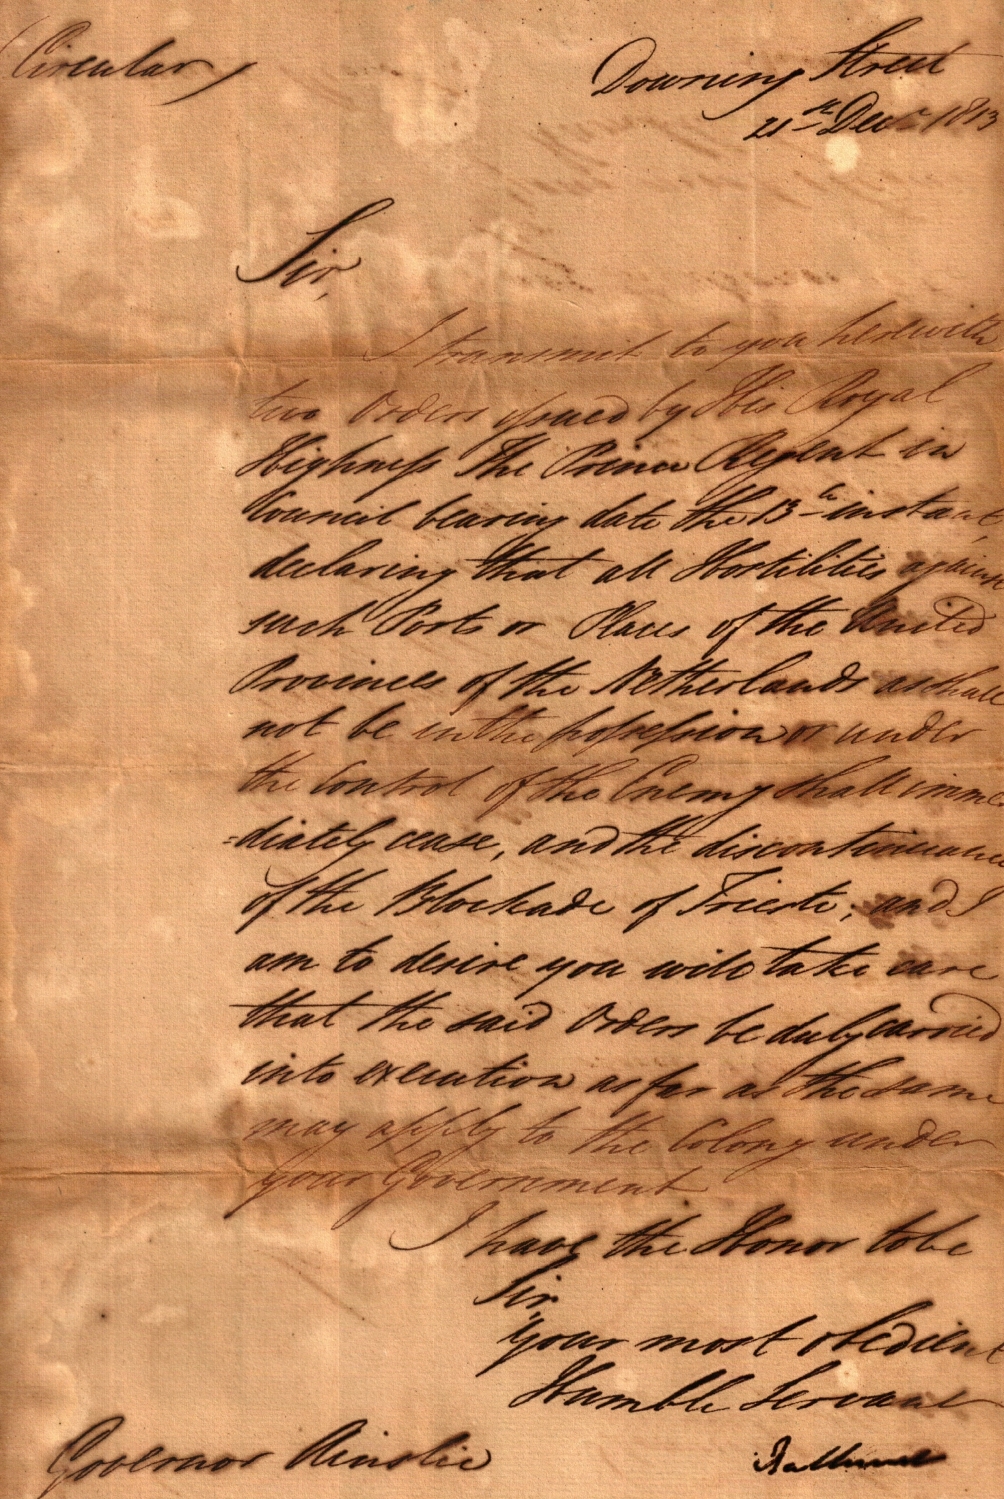 Circular
Downing Street
21st Decr 1813
Sir,
I transmit to you herewith
two Orders issued by His Royal
Highness The Prince Regent in
Council bearing date the 13th instant,
declaring that all Hostilities against
such Ports or Places of the United
Provinces of the Netherlands as shall
not be in the possession or under
the Control of the Enemy shall imme
=diately cease, and the discontinuance
of the Blockade of Trieste; and I
am to desire you will take care
that the said Orders be duly carried
into execution as far as the same
may apply to the Colony under
your Government
I have the Honor to be
Sir,
Your most obedient
Humble Servant
Bathurst
Governor Ainslie